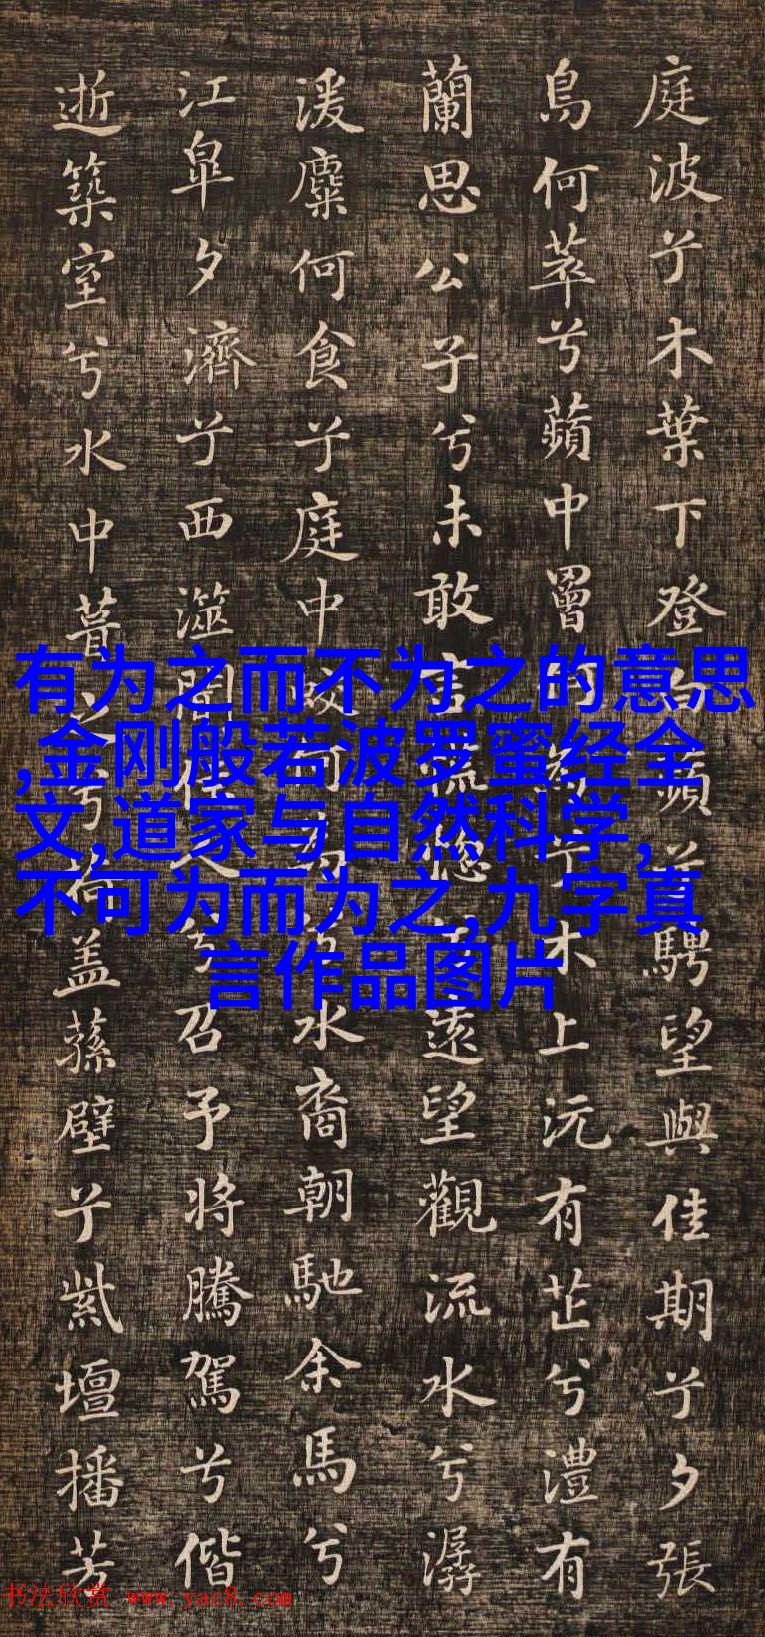 庭波兮木葉下登白蘋兮騁望與佳期兮夕張
鳥何萃兮蘋中罾何為兮木上沅有芷兮澧有
蘭思公子兮未敢言荒惚兮遠望觀流水兮潺
湲麋何食兮庭中蛟何為兮水裔朝馳余馬兮
江皋夕濟兮西澨聞佳人兮召予將騰駕兮偕
逝築室兮水中葺之兮荷蓋蓀壁兮紫壇播芳
有为之而不为之的意思
,金刚般若波罗蜜经全
文,道家与自然科学,
不可为而为之,九字真
言作品图片
书法欣赏 www.yac8.com